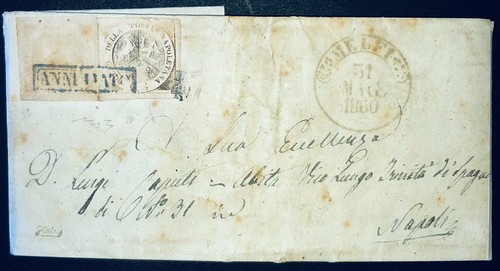 DELLA POSTA NAPOLETANA
ANNULLATO
MELFI
31
MAG.
1860
A Sua Eccellenza
D. Luigi Caputi - Abita Vico Lungo Trinità di Spagna
di N.° 31
Napoli